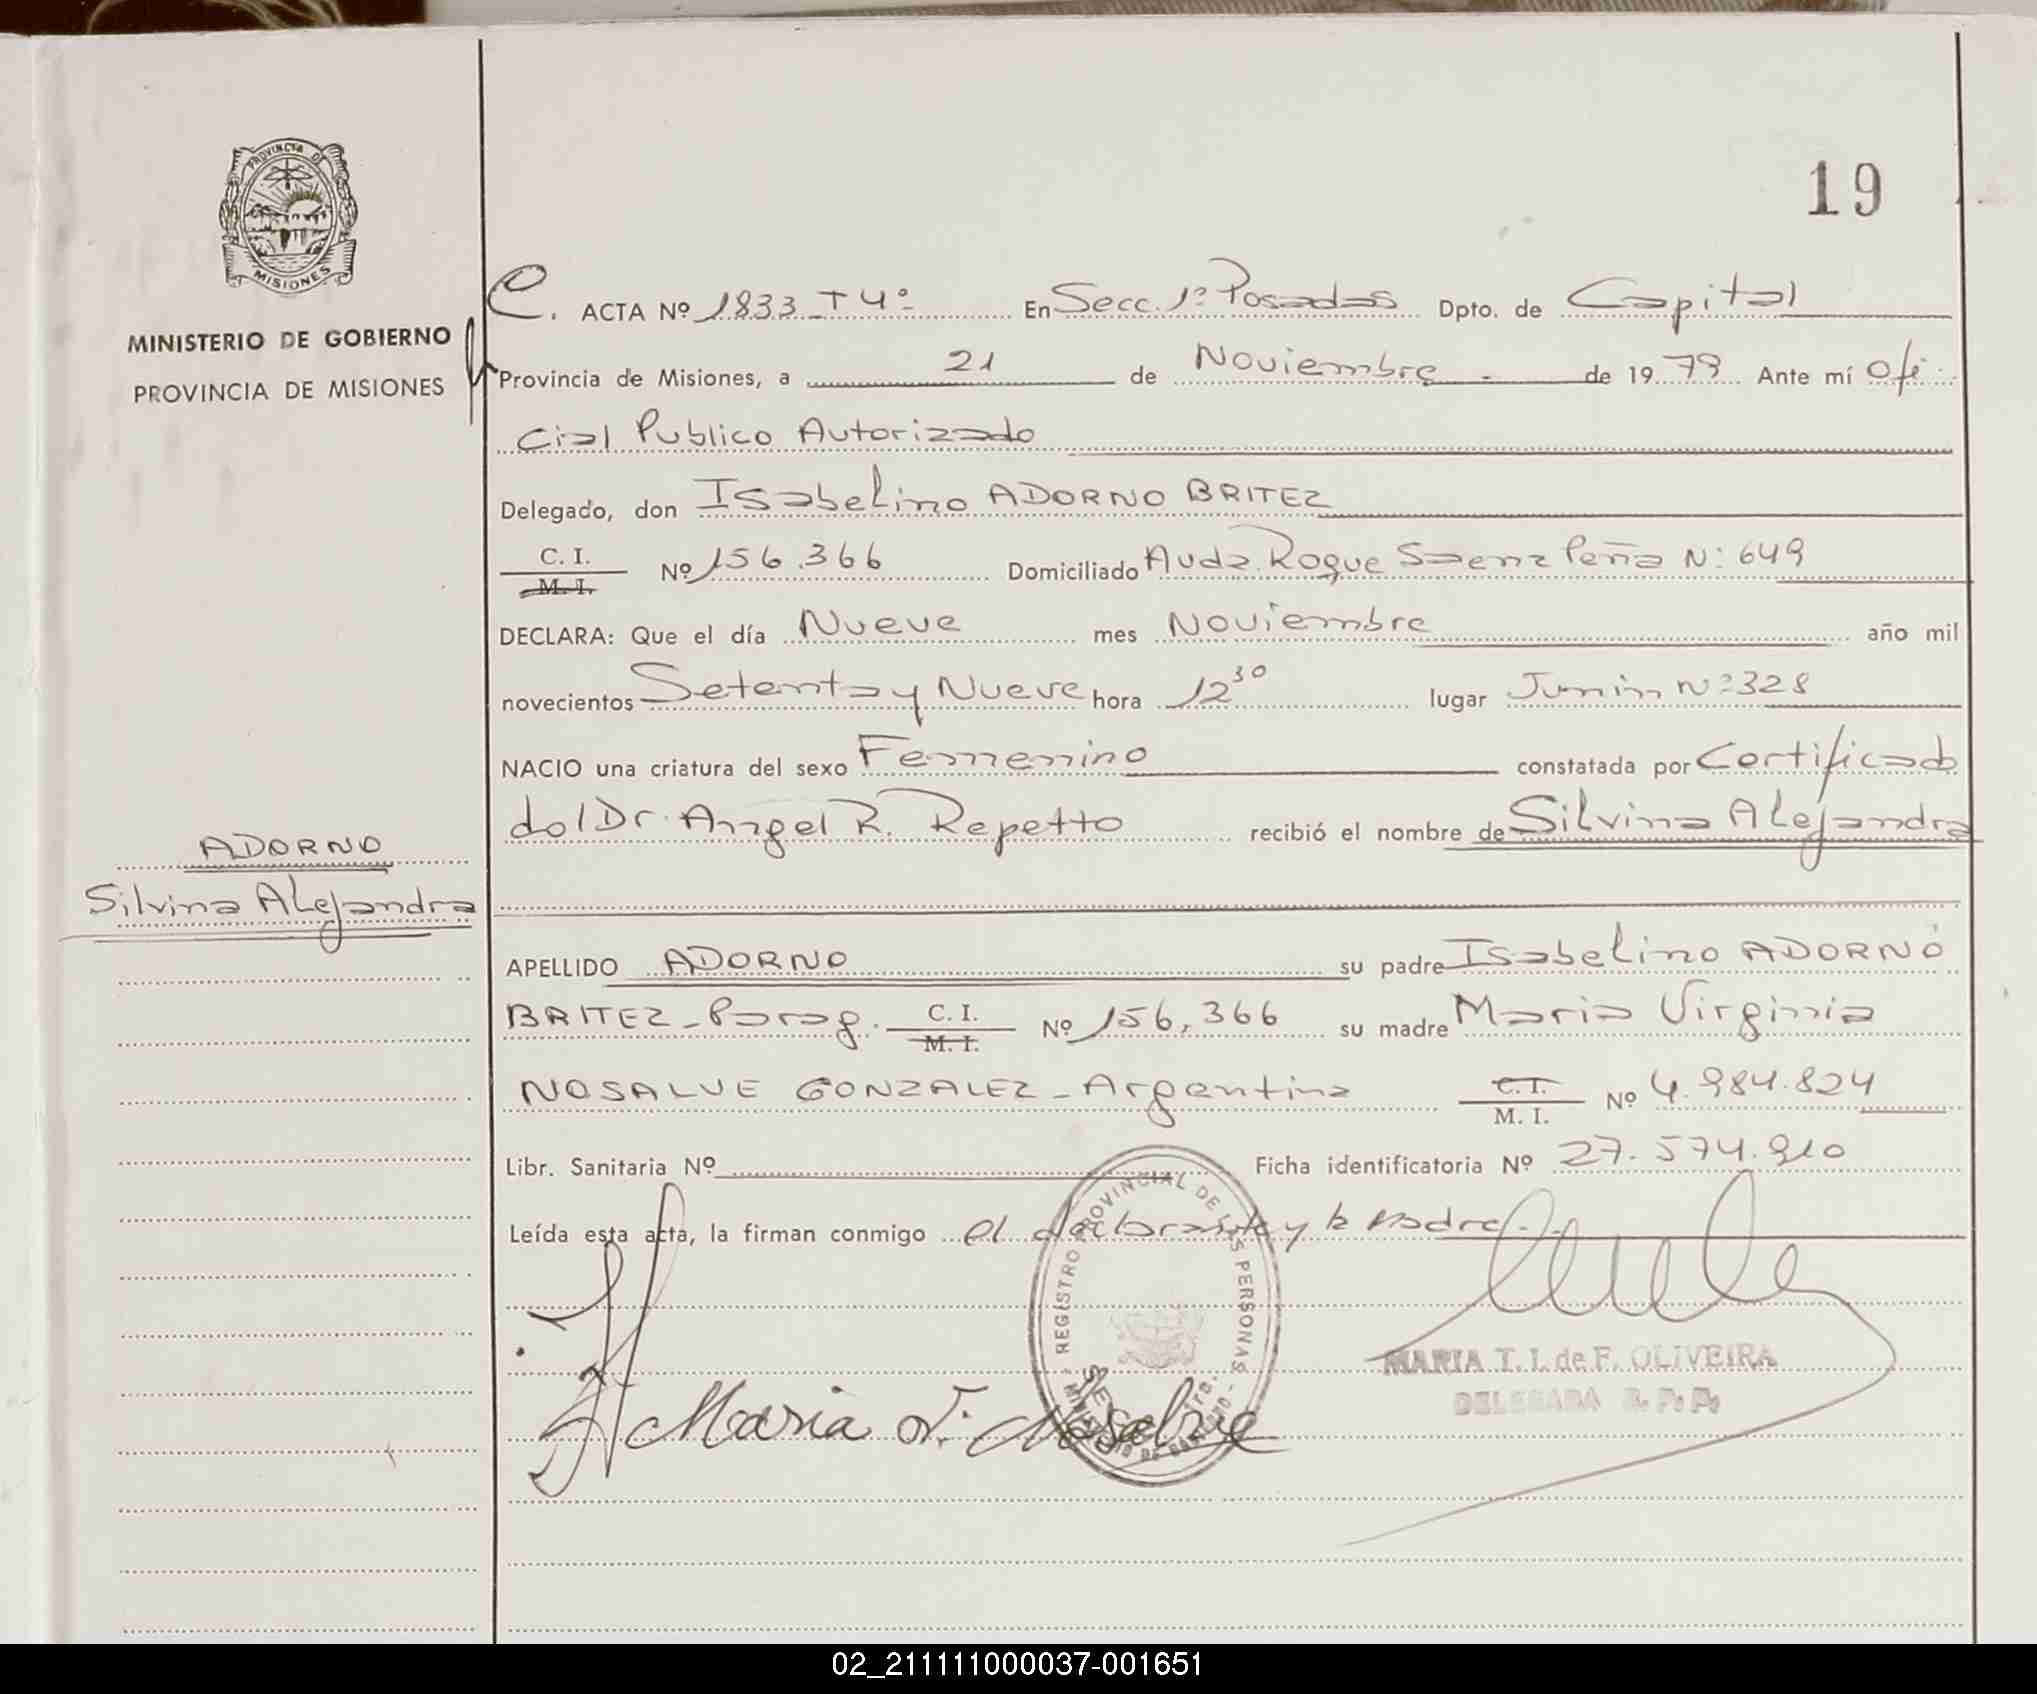 19
PROVINCIA DE
MISIONES
MINISTERIO DE GOBIERNO
PROVINCIA DE MISIONES
C. ACTA Nº 1833 T4º En Secc. 1º Posadas Dpto. de Capital
Provincia de Misiones, a 21 de Noviembre de 1979 Ante mí Ofi
cial Publico Autorizado
Delegado, don Isabelino ADORNO BRITEZ
C. I.
M. I.
Nº 156.366 Domiciliado Avda. Roque Saenz Peña Nº 649
DECLARA: Que el día Nueve mes Noviembre año mil
novecientos Setenta y Nueve hora 12 30 lugar Junin Nº 328
NACIO una criatura del sexo Femenino constatada por Certificado
del Dr. Angel R. Repetto recibió el nombre de Silvina Alejandra
ADORNO
Silvina Alejandra
APELLIDO ADORNO su padre Isabelino ADORNO
BRITEZ - Parag. C. I. M. I. Nº 156.366 su madre Maria Virginia
NOSALVE GONZALEZ - Argentina C. I. M. I. Nº 4.984.824
Libr. Sanitaria Nº Ficha identificatoria Nº 27.574.910
Leída esta acta, la firman conmigo el declarante y la madre.
REGISTRO PROVINCIAL DE LAS PERSONAS
MARIA T. I. de F. OLIVEIRA
DELEGADA R. P. P.
Maria V. Nosalve
02_211111000037-001651